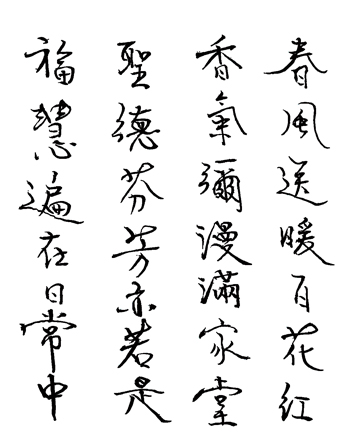 春風送暖百花紅
香氣彌漫滿家堂
聖德芬芳亦若是
福慧遍在日常中